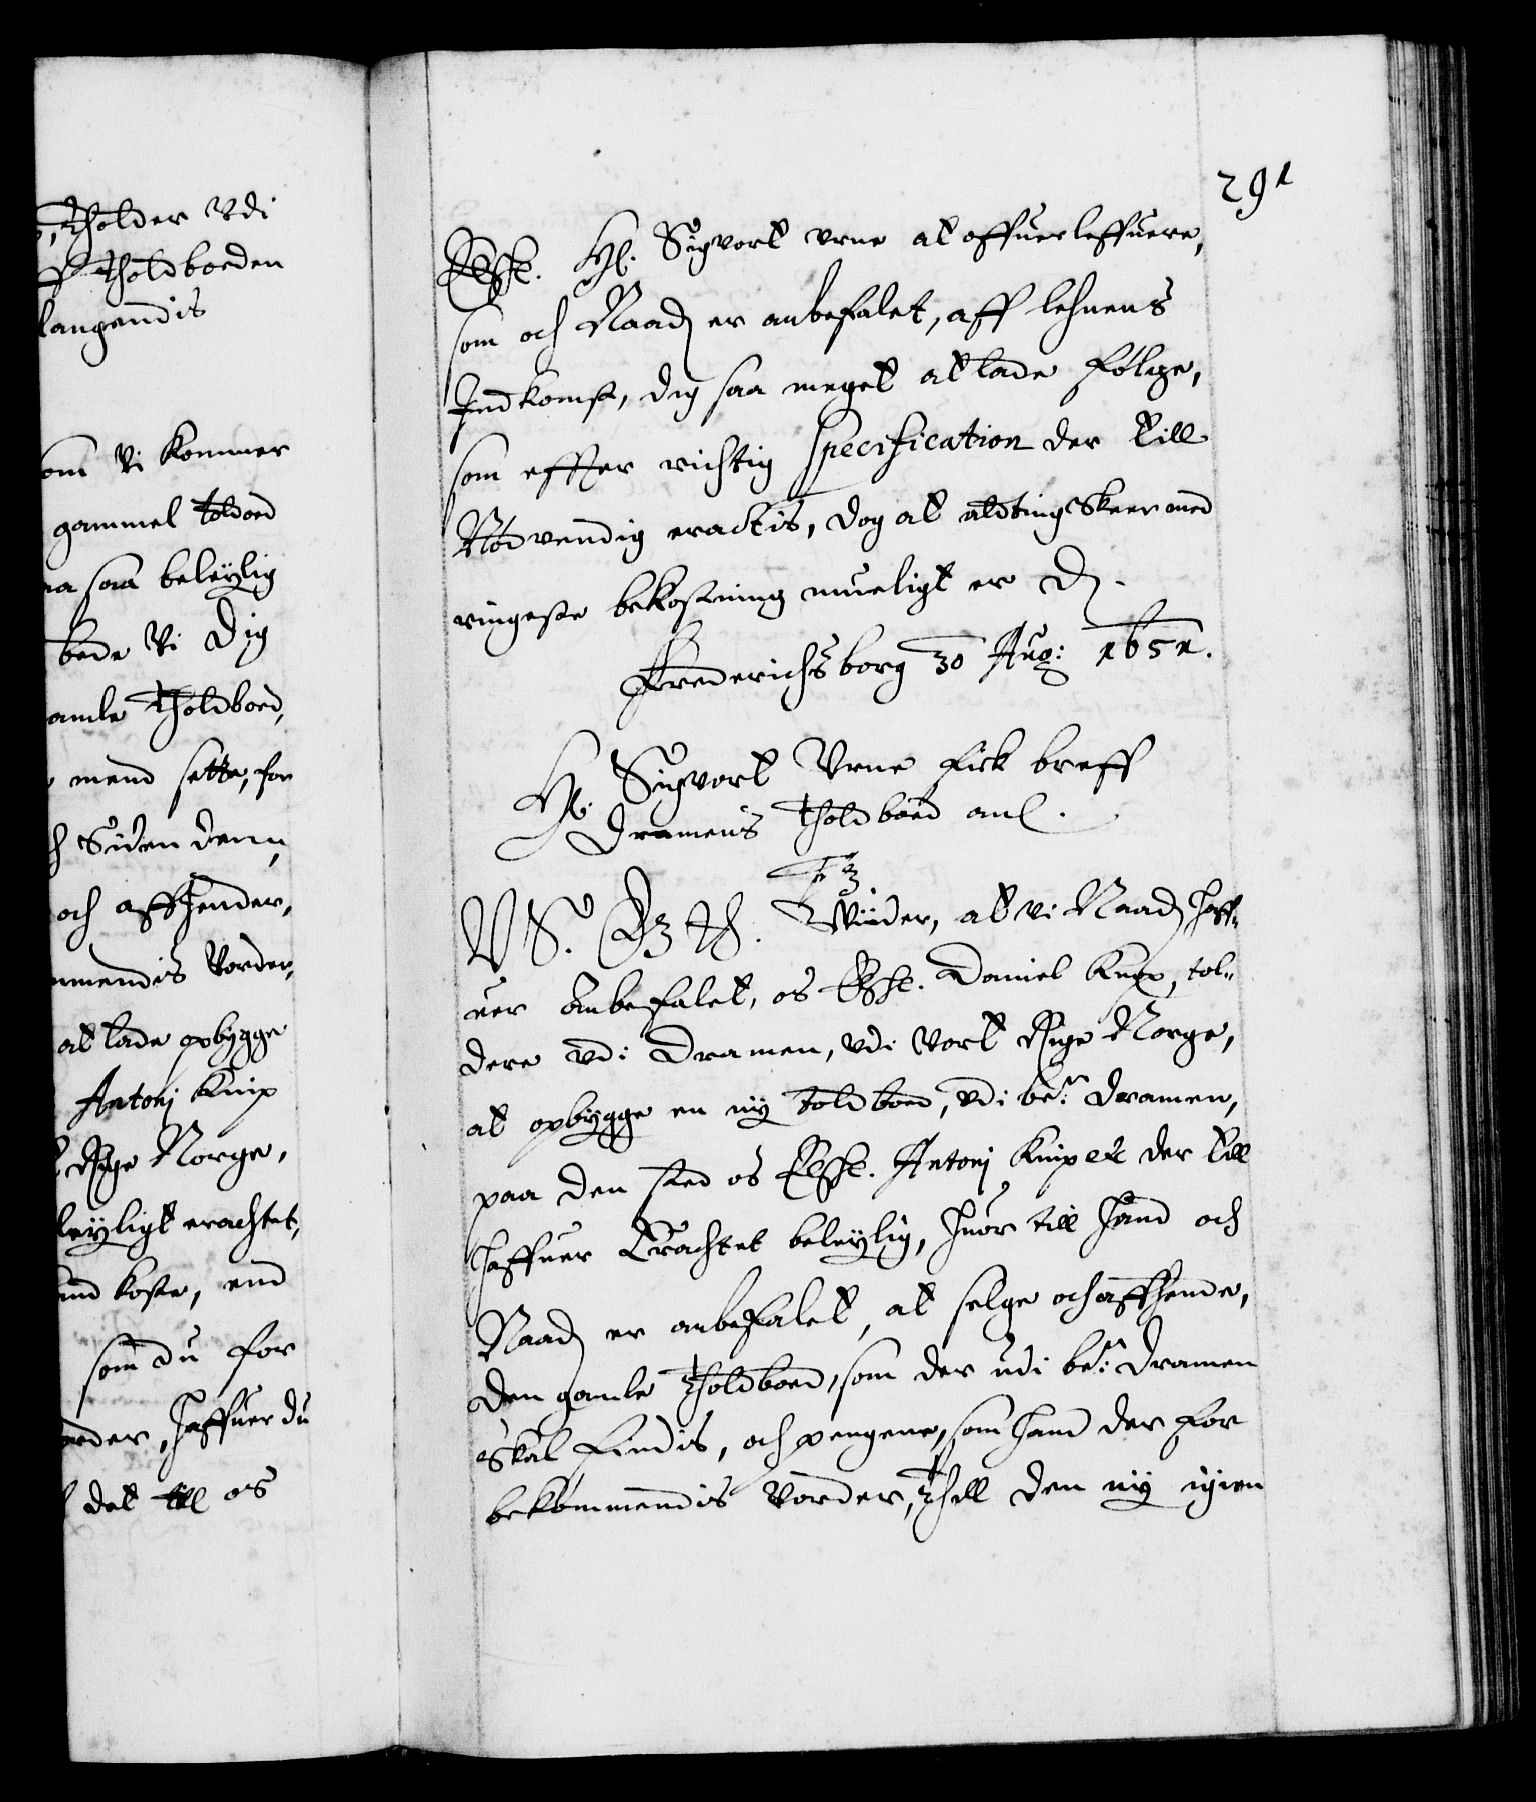 , Tholder Vdi
Tholdboeden
langendis
om Vi kommer
gammel toldboed
na saa beleylig
bede Vi Dig
amle Tholdboed,
mend sette, for
Siden denn
och affhender,
mmendis Vorder,
at lade opbygge
Antonj Knip
Rige Norge,
leyligt erachtet,
und koste, end
som du for
order, haffuer du
det till os
291
Elskel. Hl. Sigvort Vrne at offuerleffuere,
som och Naad: er anbefalet, aff lehnens
Indkomst, dig saa meget at lade følge,
som effter richtig specification der till
Nødvendig erachtis, dog at aldting skeer med
ringeste bekostning mueligt er D.
Frederichsborg 30 Aug: 1651.
Hl. Sigvort Vrne fick breff
Dramens Tholdboed anl.
V S. G T. Wiider, at vi Naad: haff-
uer anbefalet, os Elskel. Daniel Knip, tol-
dere vdi Dramen, vdi Vort Rige Norge,
at opbygge en ny toldboed, vdi be:te Dramen,
paa den sted os Elskel. Antonj Knip etc der till
haffuer Erachtet beleylig, huor till hand och
Naad: er anbefalet, at selge och affhende,
den gamle Tholdboed, som der udi be:te Dramen
skal findis, och pengene, som hand der for
bekommendis Vorder, Thill den ny igien